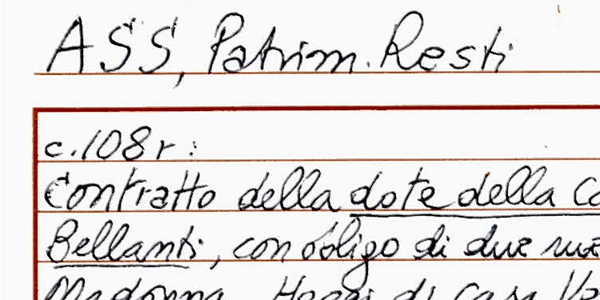 ASS, Patrim. Resti
c.108r:
Contratto della dote della
Bellanti, con obligo di due
Madonna di Casa